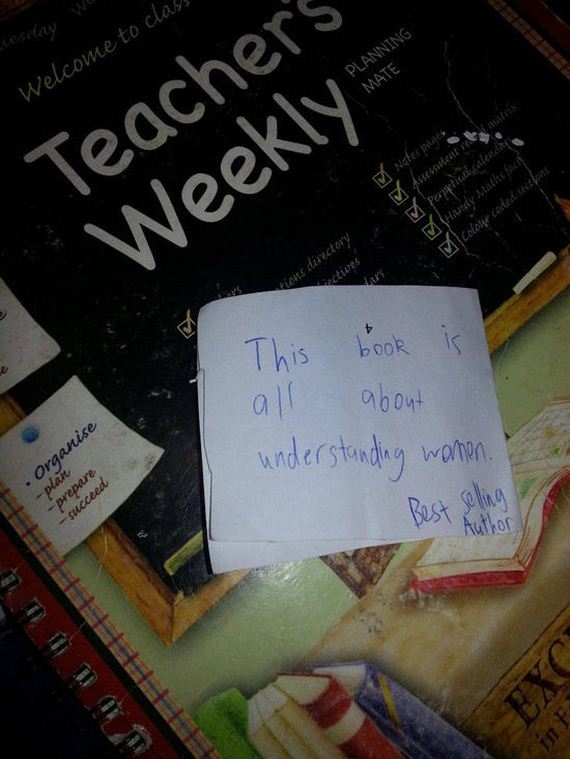 Welcome to class
Teacher's
Weekly
PLANNING
MATE
Notes pages
Handy Maths
Colour coded sections
directory
This book is
all about
understanding women.
Best selling
Author
• Organise
- plan
- prepare
- succeed
EXC
in